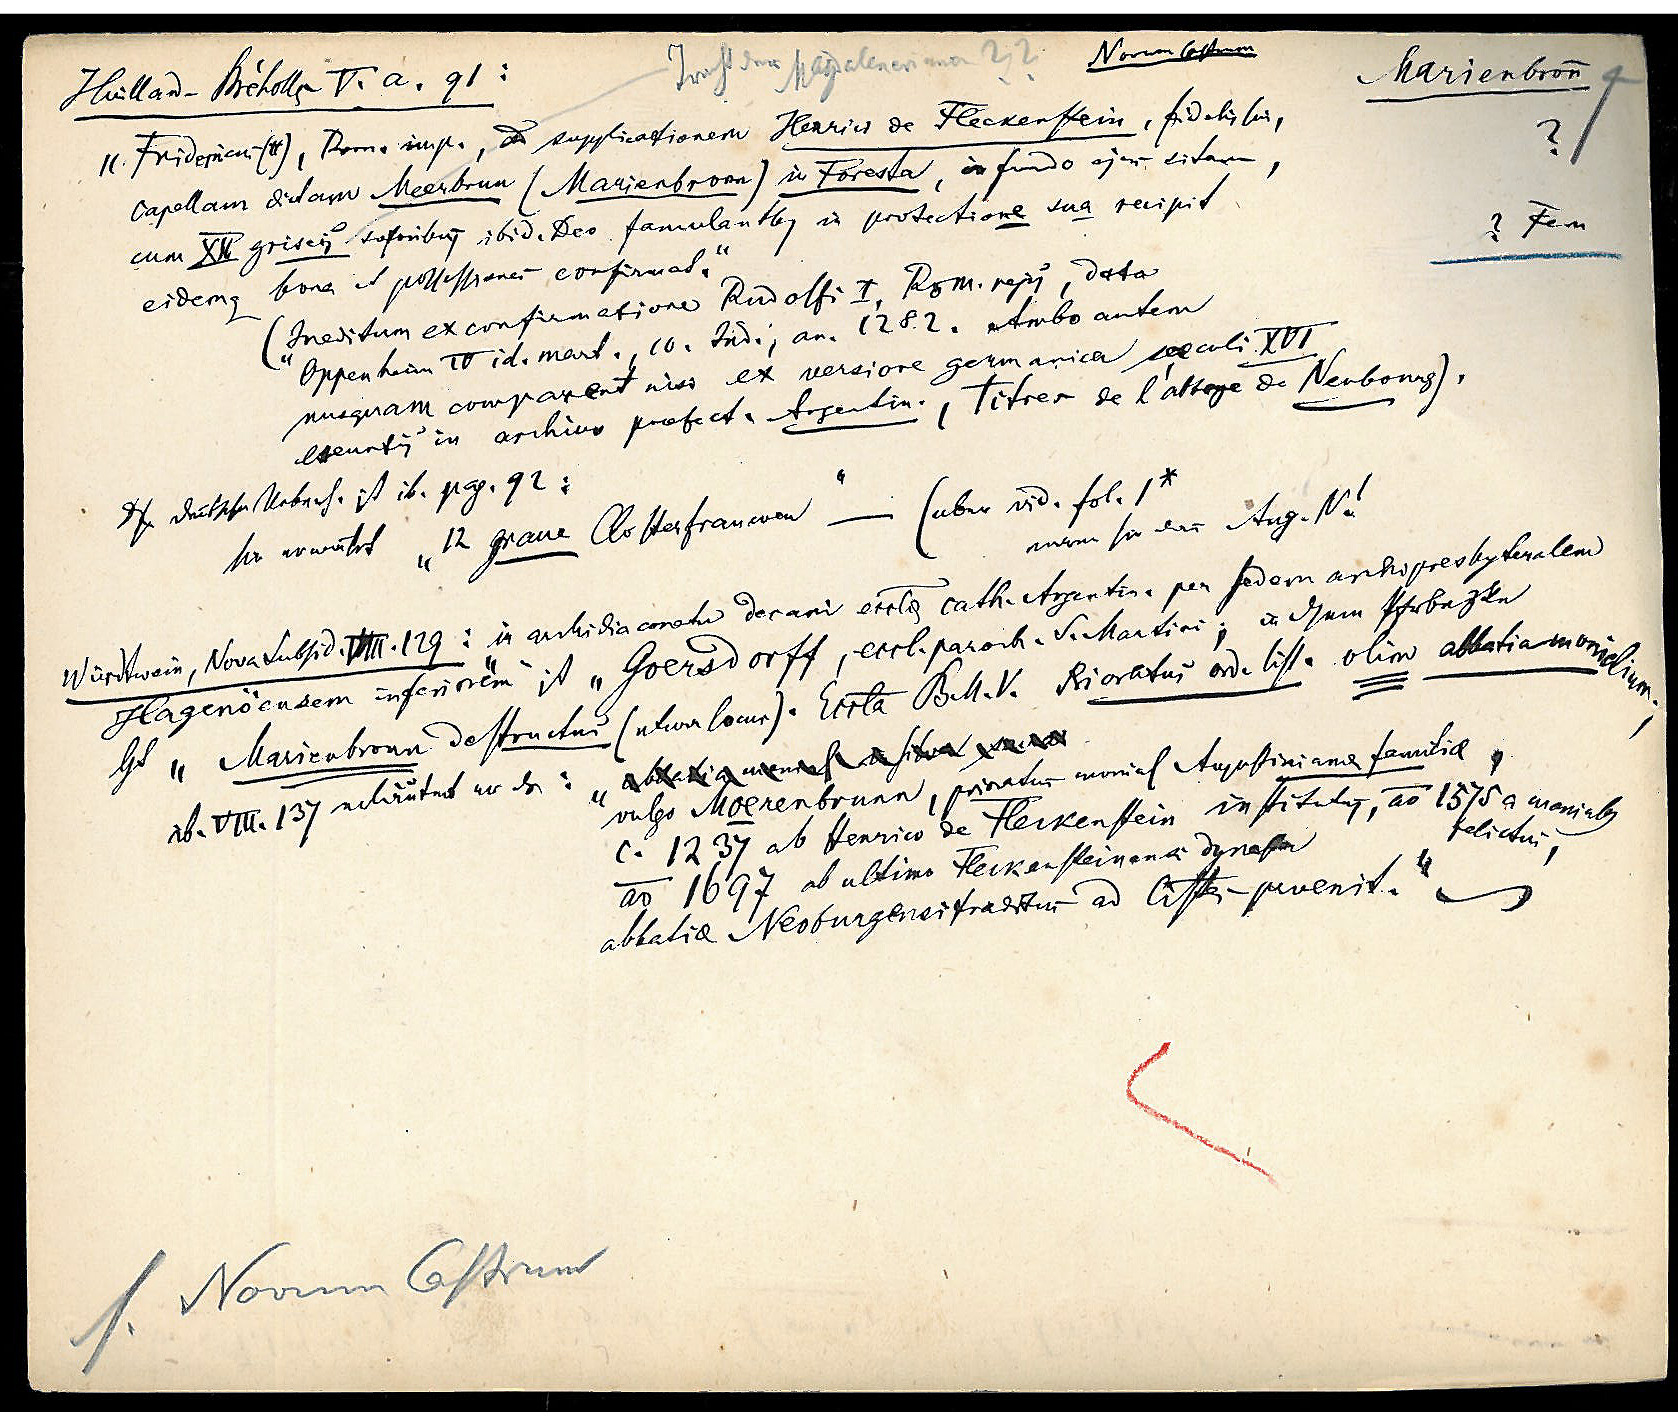 Novum Castrum
Marienbron̄
Huillard-Bréholles V. a. 91:
?
"Fridericus (II), Rom. imp., ad supplicationem Henrici de Fleckenstein, fidelis sui,
capellam dictam Meerbrun (Marienbronn) in Foresta, in fundo ejus sitam,
? Fem
cum XII griseis sororibus ibid. Deo famulantibus in protectione sua recipit
eidemq bona et possessiones confirmat."
(Ineditum ex confirmatione Rudolfi I, Rom. regis, data
"Oppenheim IV id. mart., 10. Ind., an. 1282. Ambo autem
nusquam comparent nisi ex versione germanica sæculi XVI
in archivo præfect. Argentin., Titres de l'abbaye de Neubourg).
ist ib. pag. 92:
"12 graue Closterfrauwen" — (aber vid. fol. 1*
Aug. N.!
Würdtwein, Nova Subsid. VIII. 129: in archidiaconatu decani eccliæ cath. Argentin. per sedem archipresbyteralem
Hagenöensem inferiorem ist "Goersdorff, eccl. paroch. S. Martini; in
"Marienbronn destructus (locus). Eccla B.M.V. Prioratus ord. Cist. olim abbatia monialium;
ib. VIII. 137 erläutert er da: "
vulgo Moerenbrunn, prioratus monial Augustinianæ familiæ,
c. 1237 ab Henrico de Fleckenstein institutus, ao 1575 a monialb
relictus,
ao 1697 ab ultimo Fleckensteinensi dynasta
abbatiæ Neoburgensi traditus ad Cist. pervenit."
s. Novum Castrum